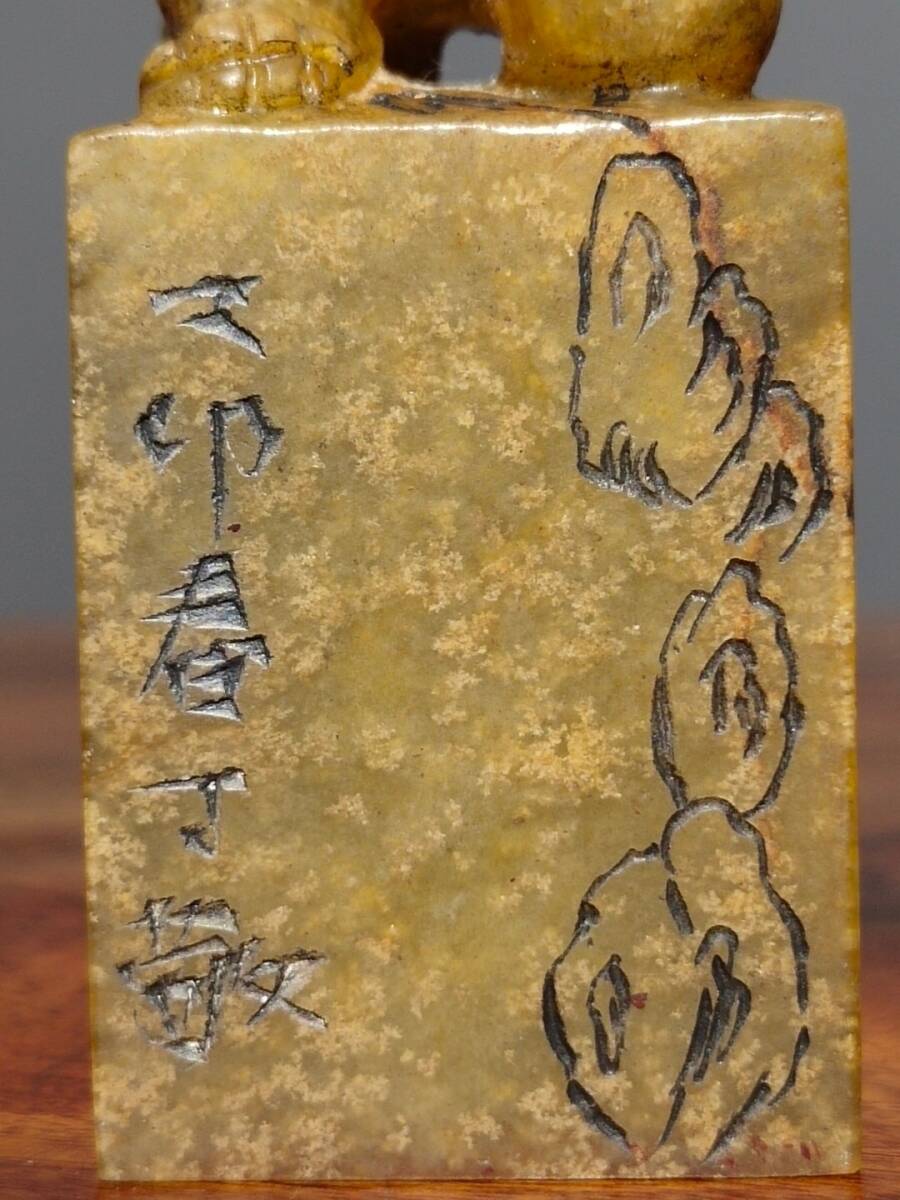 卯春丁敬